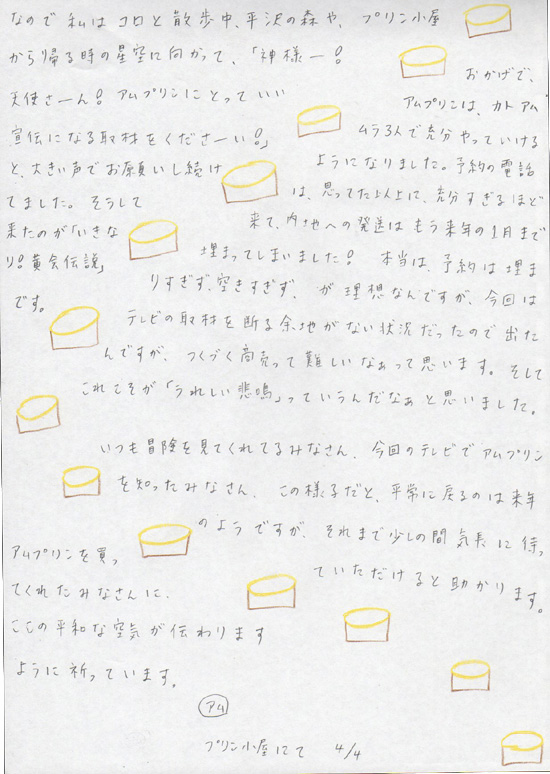 なので私はコロと散歩中、平沢の森や、プリン小屋
から帰る時の星空に向かって、「神様ー!
天使さーん!アムプリンにとっていい
宣伝になる取材をくださーい!」
と、大きい声でお願いし続け
てました。そうして
来たのが「いきな
り!黄金伝説」
です。
おかげで、
アムプリンは、カトアム
ムラ3人で充分やっていける
ようになりました。予約の電話
は、思ってた以上に、充分すぎるほど
来て、内地への発送はもう来年の1月まで
埋まってしまいました!本当は、予約は埋ま
りすぎず、空きすぎず、が理想なんですが、今回は
テレビの取材を断る余地がない状況だったので出た
んですが、つくづく商売って難しいなぁって思います。そして
これこそが「うれしい悲鳴」っていうんだなぁと思いました。
いつも冒険を見てくれてるみなさん、今回のテレビでアムプリン
を知ったみなさん、この様子だと、平常に戻るのは来年
のようですが、それまで少しの間気長に待っ
ていただけると助かります。
アムプリンを買っ
てくれたみなさんに、
ここの平和な空気が伝わります
ように祈っています。
アム
プリン小屋にて 4/4